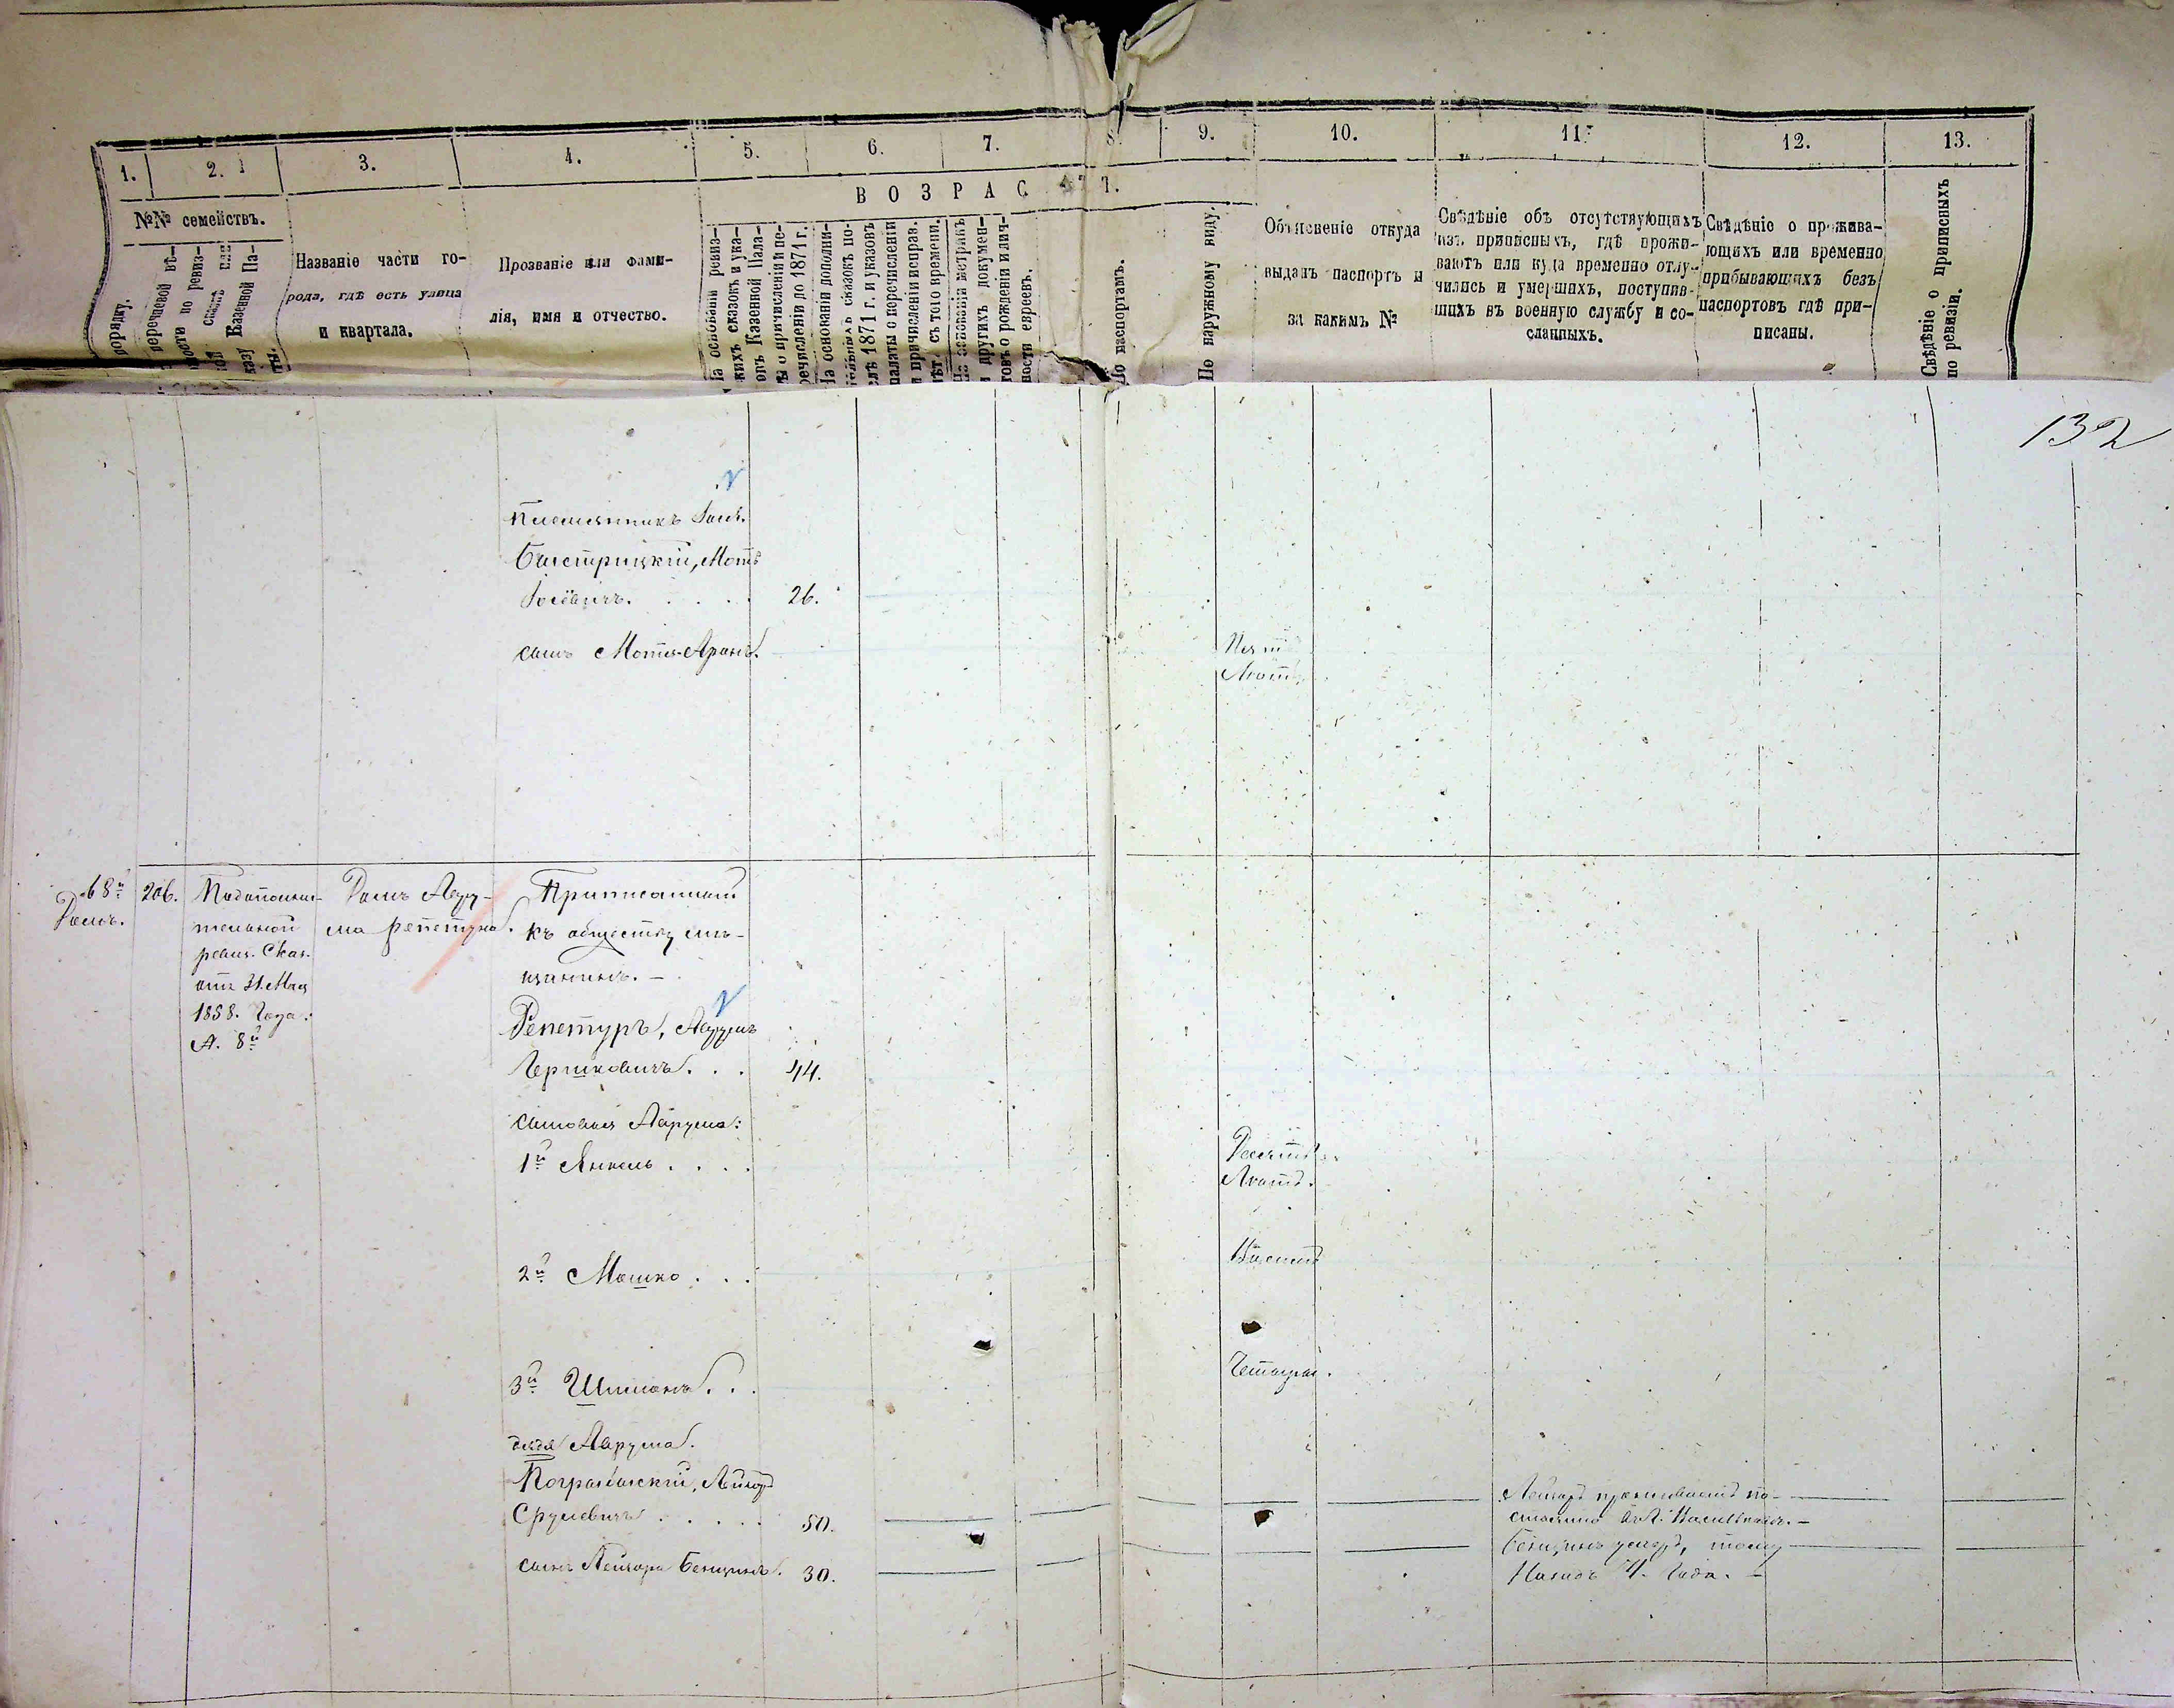 1.
2.
3.
4.
5.
6.
7.
8.
9.
10.
11.
12.
13.
В О З Р А С Т Ъ.
№№ семействъ.
порядку.
перечневой вѣ-
ности по ревиз-
казу Казенной Па-
ты.
Названіе части го-
рода, гдѣ есть улица
и квартала.
Прозваніе или фами-
лія, имя и отчество.
На основаніи ревиз-
скихъ сказокъ и ука-
зовъ Казенной Пала-
ты о причисленіи и пе-
речисленіи до 1871 г.
На основаніи дополни-
тельныхъ сказокъ по-
слѣ 1871 г. и указовъ
палаты о перечисленіи
и причисленіи исправ.
лѣт. съ того времени.
На основаніи метрикъ
и другихъ докумен-
товъ о рожденіи и лич-
ности евреевъ.
По паспортамъ.
По наружному виду.
Объясненіе откуда
выданъ паспортъ и
за какимъ №
Свѣдѣніе объ отсутствующихъ
изъ приписныхъ, гдѣ прожи-
ваютъ или куда временно отлу-
чились и умершихъ, поступив-
шихъ въ военную службу и со-
сланныхъ.
Свѣдѣніе о прожива-
ющихъ или временно
прибывающихъ безъ
паспортовъ гдѣ при-
писаны.
Свѣдѣніе о приписныхъ
по ревизіи.
132
Племянникъ
Быстрицкій, Мотя
26.
сынъ Мотя Аронъ.
Пять
Лѣтъ
68й
Домъ.
206.
По дополни-
тельной
ревиз. Сказ.
отъ 31 Мая
1858. Года.
А. 8й
Домъ Авру-
ма Репетура.
Приписанный
къ обществу мѣ-
щанинъ. —
Репетуръ, Аврумъ
Гершковичъ. . .
44.
сыновья Аврума:
1й Янкель . . . .
Десять
Лѣтъ.
2й Мошко . . .
Шесть
3й Шимонъ. . .
Четыре.
дядя Аврума.
Погребыскій, Лейзоръ
Срулевичъ . . . . .
50.
сынъ Лейзора Бенционъ.
30.
Лейзоръ проживаетъ по-
стоянно
Бенционъ умеръ, тому
Назадъ 4. Года. —